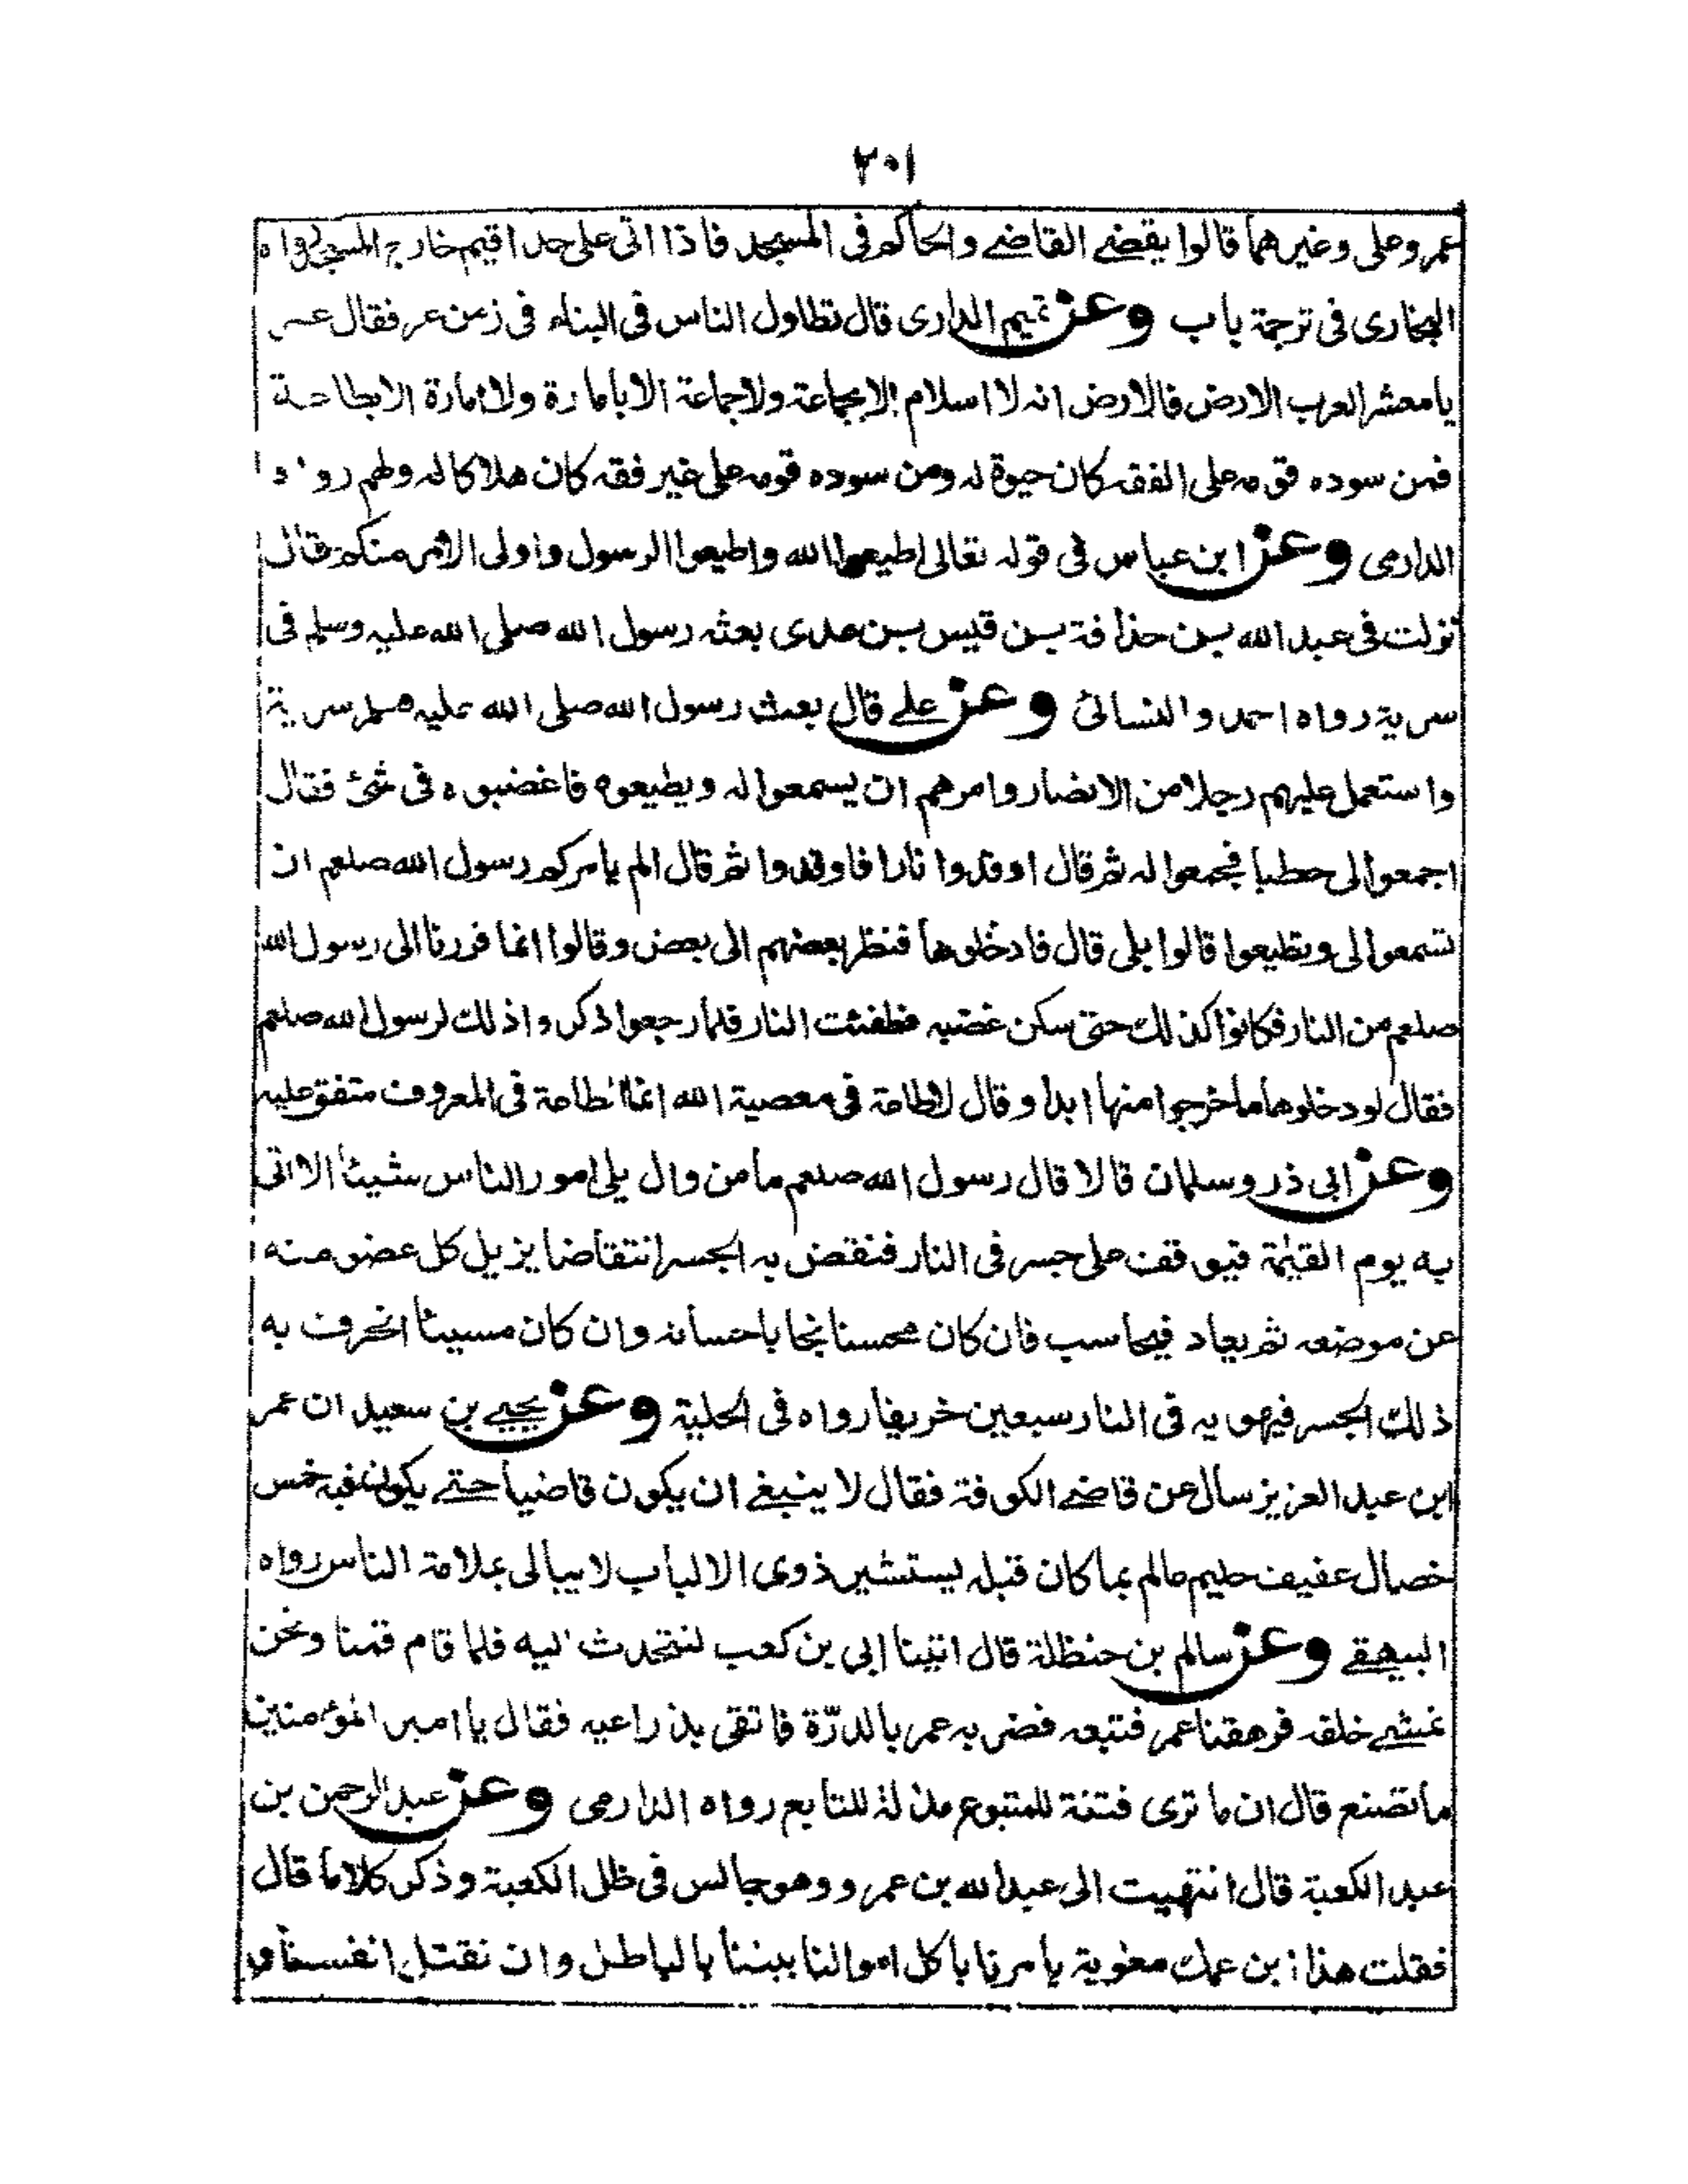 ٢٠١
عمر وعلى وغيرهما قالوا يقضے القاضے والحاكم فى المسجد فاذا اتى على حد اقيم خارج المسجد رواه
البخارى فى ترجمة باب وعن تميم الدارى قال تطاول الناس فى البناء فى زمن عمر فقال عمر
يا معشر العرب الارض فالارض انه لا اسلام الا بجماعة ولا جماعة الا بامارة ولا امارة الا بطاعة
فمن سوده قومه على الفقه كان حيوة له ومن سوده قومه على غير فقه كان هلاكا له ولهم رواه
الدارمى وعن ابن عباس فى قوله تعالى اطيعوا الله واطيعوا الرسول واولى الامر منكم قال
نزلت فى عبد الله بن حذافة بن قيس بن عدى بعثه رسول الله صلى الله عليه وسلم فى
سرية رواه احمد والنسائى وعن على قال بعث رسول الله صلى الله عليه وسلم سرية
واستعمل عليهم رجلا من الانصار وامرهم ان يسمعوا له ويطيعوه فاغضبوه فى شئ فقال
اجمعوا لى حطبا فجمعوا له ثم قال اوقدوا نارا فاوقدوا ثم قال الم يامركم رسول الله صلعم ان
تسمعوا لى وتطيعوا قالوا بلى قال فادخلوها فنظر بعضهم الى بعض وقالوا انما فررنا الى رسول الله
صلعم من النار فكانوا كذلك حتى سكن غضبه فطفئت النار فلما رجعوا ذكروا ذلك لرسول الله صلعم
فقال لو دخلوها ما خرجوا منها ابدا وقال لا طاعة فى معصية الله انما الطاعة فى المعروف متفق عليه
وعن ابى ذر وسلمان قالا قال رسول الله صلعم ما من وال يلى امور الناس شيئا الا اتى
به يوم القيٰمة فيوقف على جسر فى النار فنقض به الجسر انتقاضا يزيل كل عضو منه
عن موضعه ثم يعاد فيحاسب فان كان محسنا نجا باحسانه وان كان مسيئا انحرف به
ذلك الجسر فيهوى به فى النار سبعين خريفا رواه فى الحلية وعن يحيے بن سعيد ان عمر
ابن عبد العزيز سأل عن قاضے الكوفة فقال لا ينبغے ان يكون قاضيا حتے يكون فيه خمس
خصال عفيف حليم عالم بما كان قبله يستشير ذوى الالباب لا يبالى بملامة الناس رواه
البيهقے وعن سالم بن حنظلة قال اتينا ابى بن كعب لنتحدث اليه فلما قام قمنا ونحن
نمشے خلفه فرهقنا عمر فتبعه فضربه عمر بالدرّة فاتقى بذراعيه فقال يا امير المؤمنين
ما تصنع قال ان ما ترى فتنة للمتبوع مذلة للتابع رواه الدارمى وعن عبد الرحمن بن
عبد الكعبة قال انتهيت الى عبد الله بن عمرو وهو جالس فى ظل الكعبة وذكر كلاما قال
فقلت هذا ابن عمك معٰوية يامرنا باكل اموالنا بيننا بالباطل وان نقتل انفسنا و